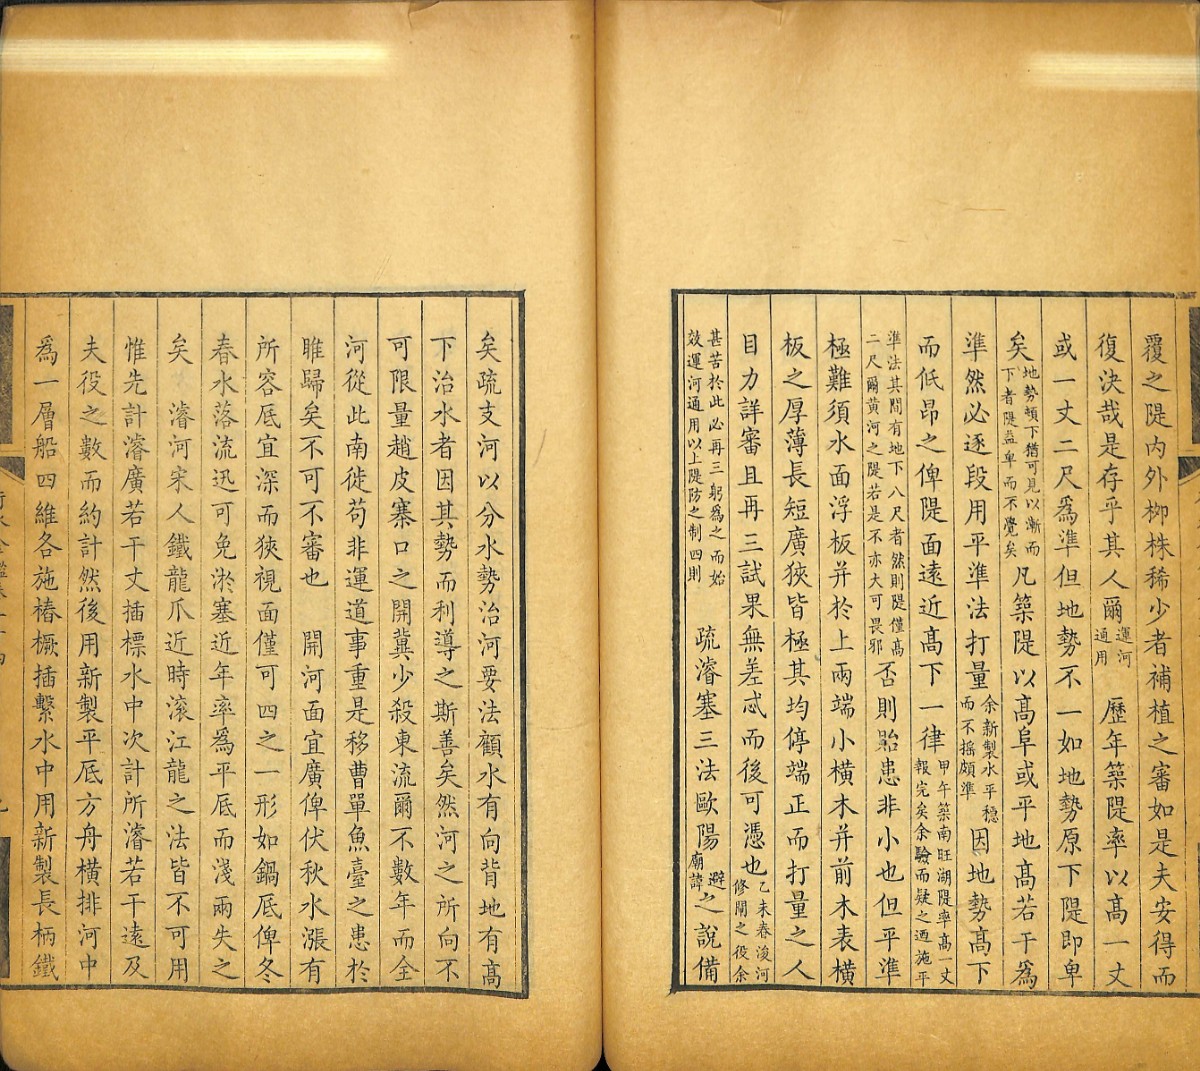 覆之隄内外栁株稀少者補植之審如是夫安得而
復決哉是存乎其人爾運河通用　歷年築隄率以髙一丈
或一丈二尺爲準但地勢不一如地勢原下隄即卑
矣地勢頓下猶可見以漸而下者隄益卑而不覺矣凡築隄以髙阜或平地髙若干爲
準然必逐段用平準法打量余新製水平穏而不摇頗準因地勢髙下
而低昂之俾隄面遠近髙下一律甲午築南旺湖隄率髙一丈報完矣余驗而疑之廼施平
準法其間有地下八尺者然則隄僅髙二尺爾黄河之隄若是不亦大可畏邪否則貽患非小也但平準
極難須水面浮板并於上兩端小横木并前木表横
板之厚薄長短廣狹皆極其均停端正而打量之人
目力詳審且再三試果無差忒而後可憑也乙未春浚河修閘之役余
甚苦於此必再三躬爲之而始效運河通用以上隄防之制四則　疏濬塞三法歐陽避廟諱之説備
矣疏支河以分水勢治河要法顧水有向背地有髙
下治水者因其勢而利導之斯善矣然河之所向不
可限量趙皮寨口之開冀少殺東流爾不數年而全
河從此南徙苟非運道事重是移曹單魚臺之患於
睢歸矣不可不審也　開河面宜廣俾伏秋水漲有
所容底宜深而狹視面僅可四之一形如鍋底俾冬
春水落流迅可免淤塞近年率爲平底而淺兩失之
矣　濬河宋人鐵龍爪近時滚江龍之法皆不可用
惟先計濬廣若干丈插標水中次計所濬若干遠及
夫役之數而約計然後用新製平底方舟横排河中
爲一層船四維各施樁橛插繫水中用新製長柄鐵